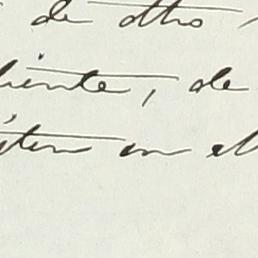 de otro
iente, de
isten en el